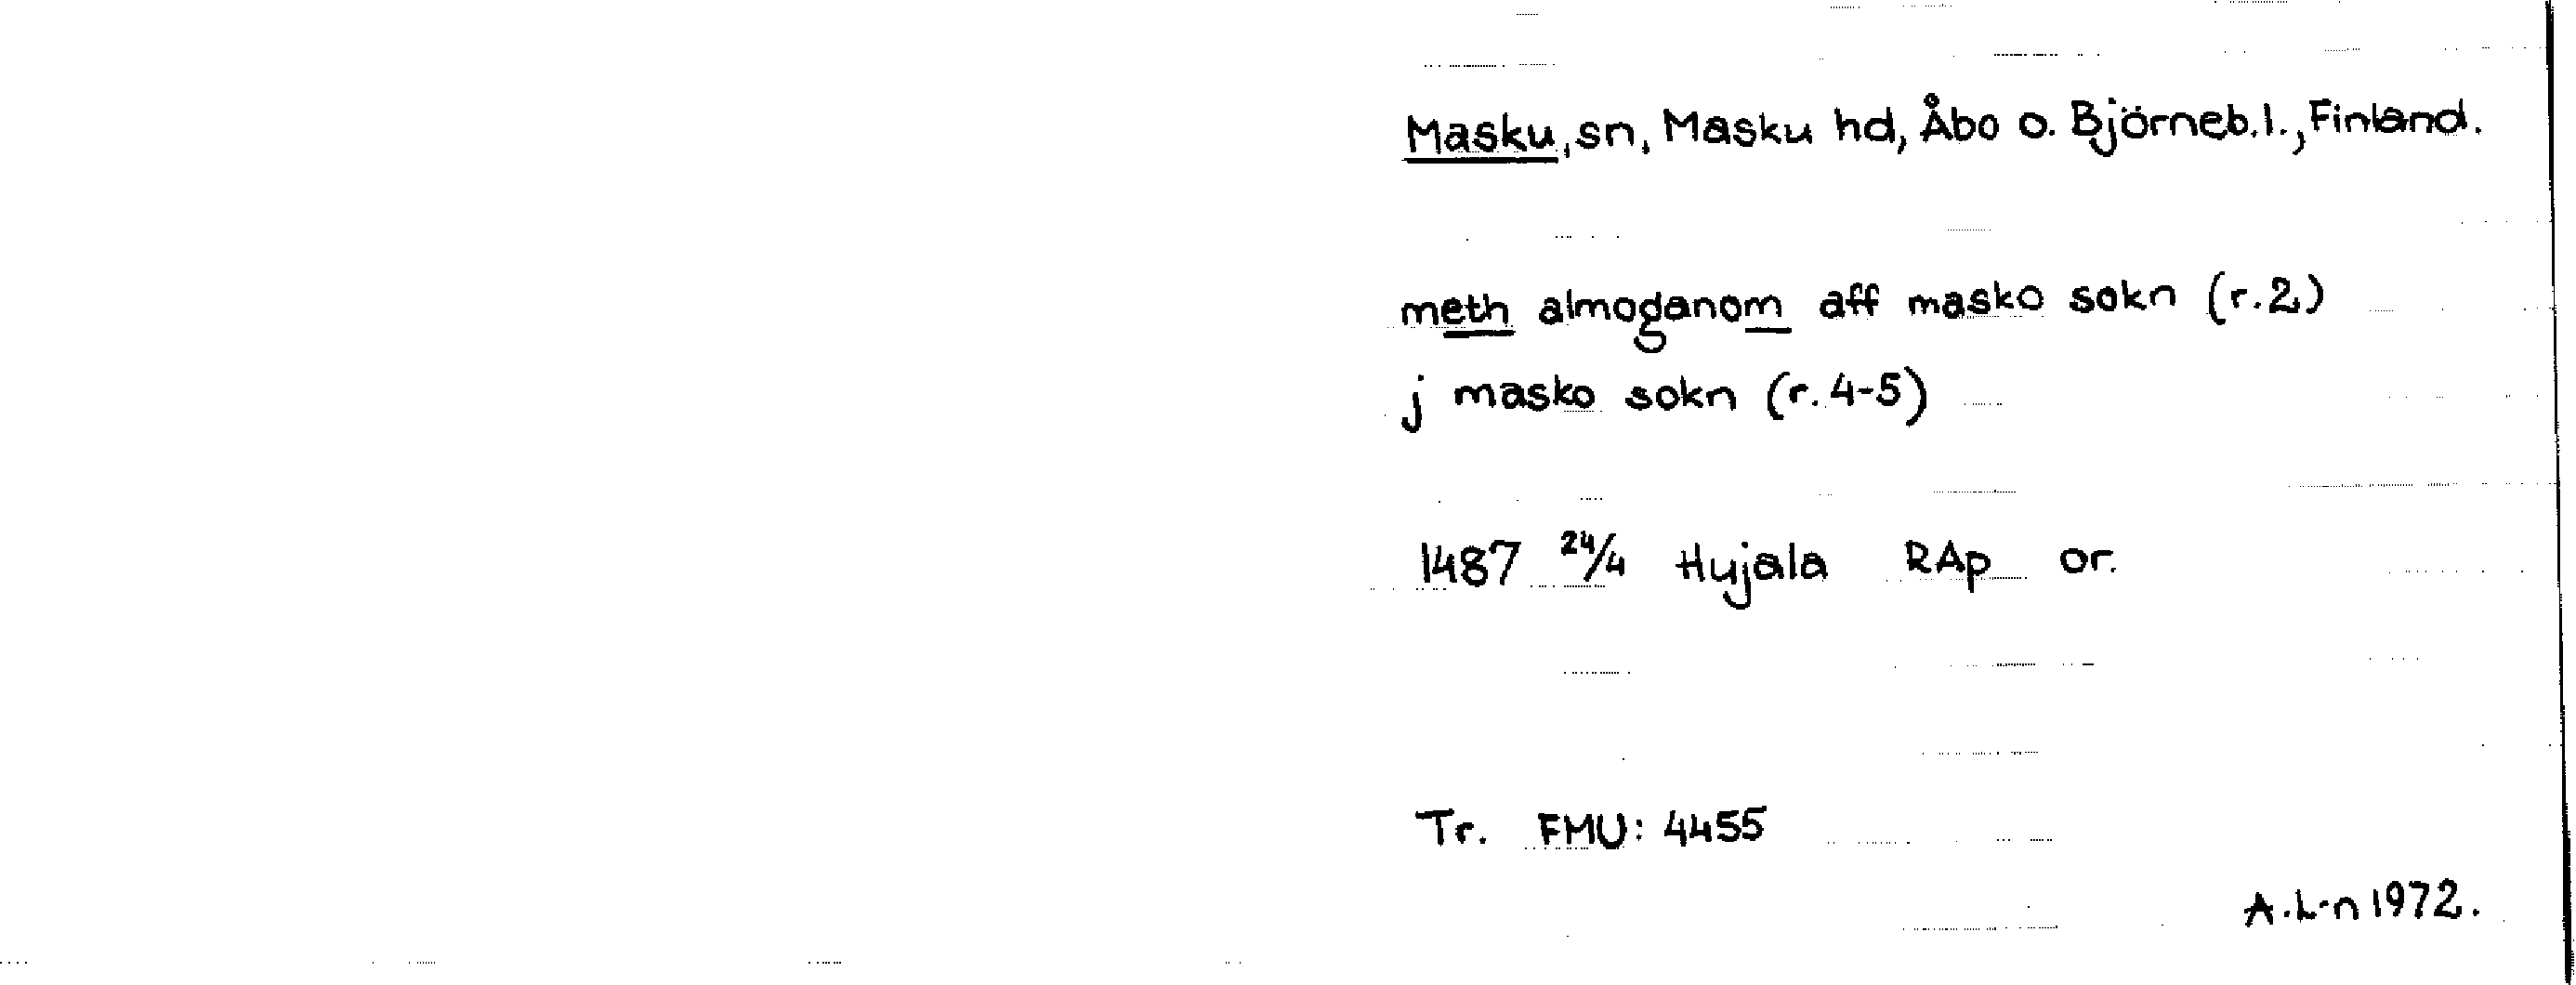 Masku, sn, Masku hd, Åbo o. Björneb.l., Finland.
meth almoganom aff masko sokn (r.2)
j masko sokn (r.4-5)
1487 24/4 Hujala RAp or.
Tr. FMU: 4455
A.L-n 1972.